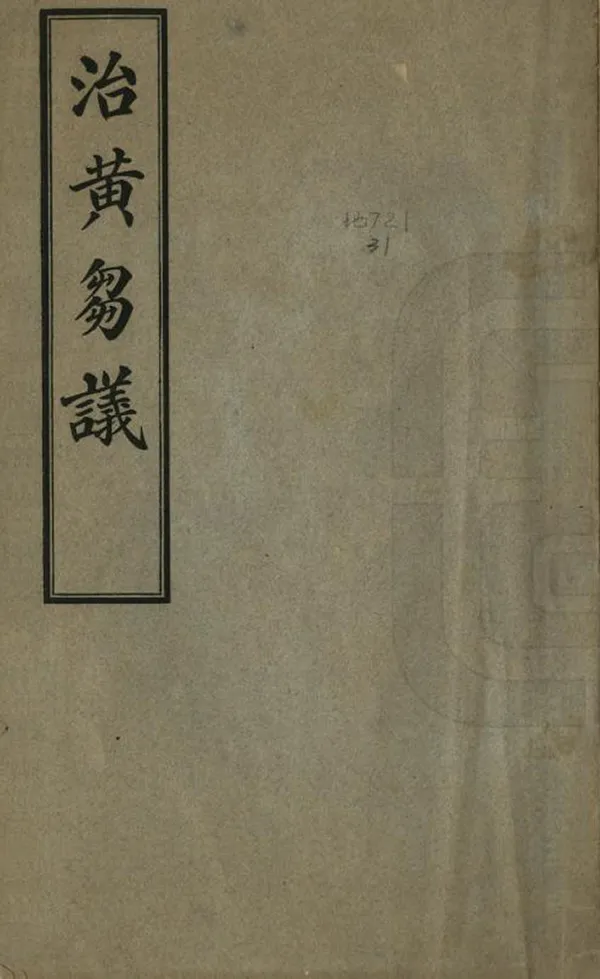 治黄芻議
地721
31